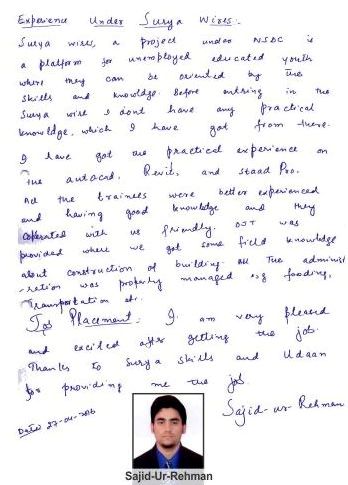 Experience Under Surya Wires:-
Surya wires, a project under NSDC is
a platform for unemployed educated youth
where they can be oriented by the
skills and knowldge. Before entring in the
Surya wire I dont have any practical
knowldge, which I have got from there.
I have got the practical experience on
the autocad, Revit, and staad Pro.
All the trainees were better experienced
and having good knowldge and they
coperated with us friendly. OJT was
provided where we got some field knowldge
about construction of building. All the administ
-ration was properly managed e.g fooding,
Transportation etc.
Job Placement:- I am very pleased
and excited aftr getting the job.
Thanks to Surya Skills and Udaan
for providing me the job.
Sajid-ur-Rehman
Dated 27-04-2016
Sajid-Ur-Rehman